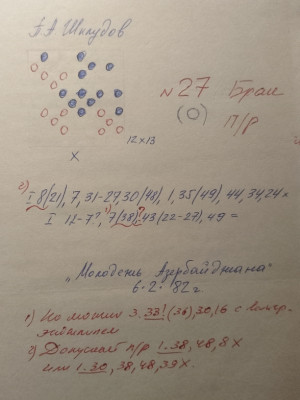 А Шкудов
№ 27 Брак
(О) п/р
12x13
X
I 8(21), 7, 31-27, 30(48), 1, 35(49), 44, 34, 24x
I 12-7?, 7(38), 43(22-27), 49 =
„Молодежь Азербайджана"
6.2. 82г
1) Но можно 3. 33! (36), 30, 16 с
2) Допускает п/р 1-38, 48, 8 X
или 1-30, 38, 48, 39 X.